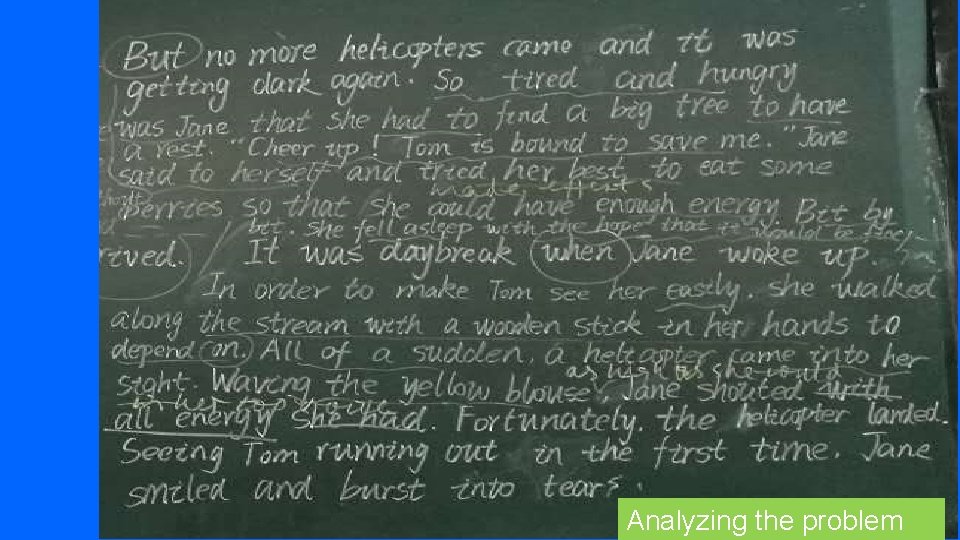 But no more helicopters came and it was
getting dark again. So tired and hungry
was Jane that she had to find a big tree to have
a rest. "Cheer up! Tom is bound to save me." Jane
said to herself and tried her best to eat some
made efforts
berries so that she could have enough energy. Bit by
bit. she fell asleep with the hope that it would be
rived. It was daybreak when Jane woke up.
In order to make Tom see her easily, she walked
along the stream with a wooden stick in her hands to
depend on. All of a sudden, a helicopter came into her
as high as she could
sight. Waving the yellow blouse, Jane shouted with
all energy she had. Fortunately, the helicopter landed.
Seeing Tom running out in the first time. Jane
smiled and burst into tears.
Analyzing the problem